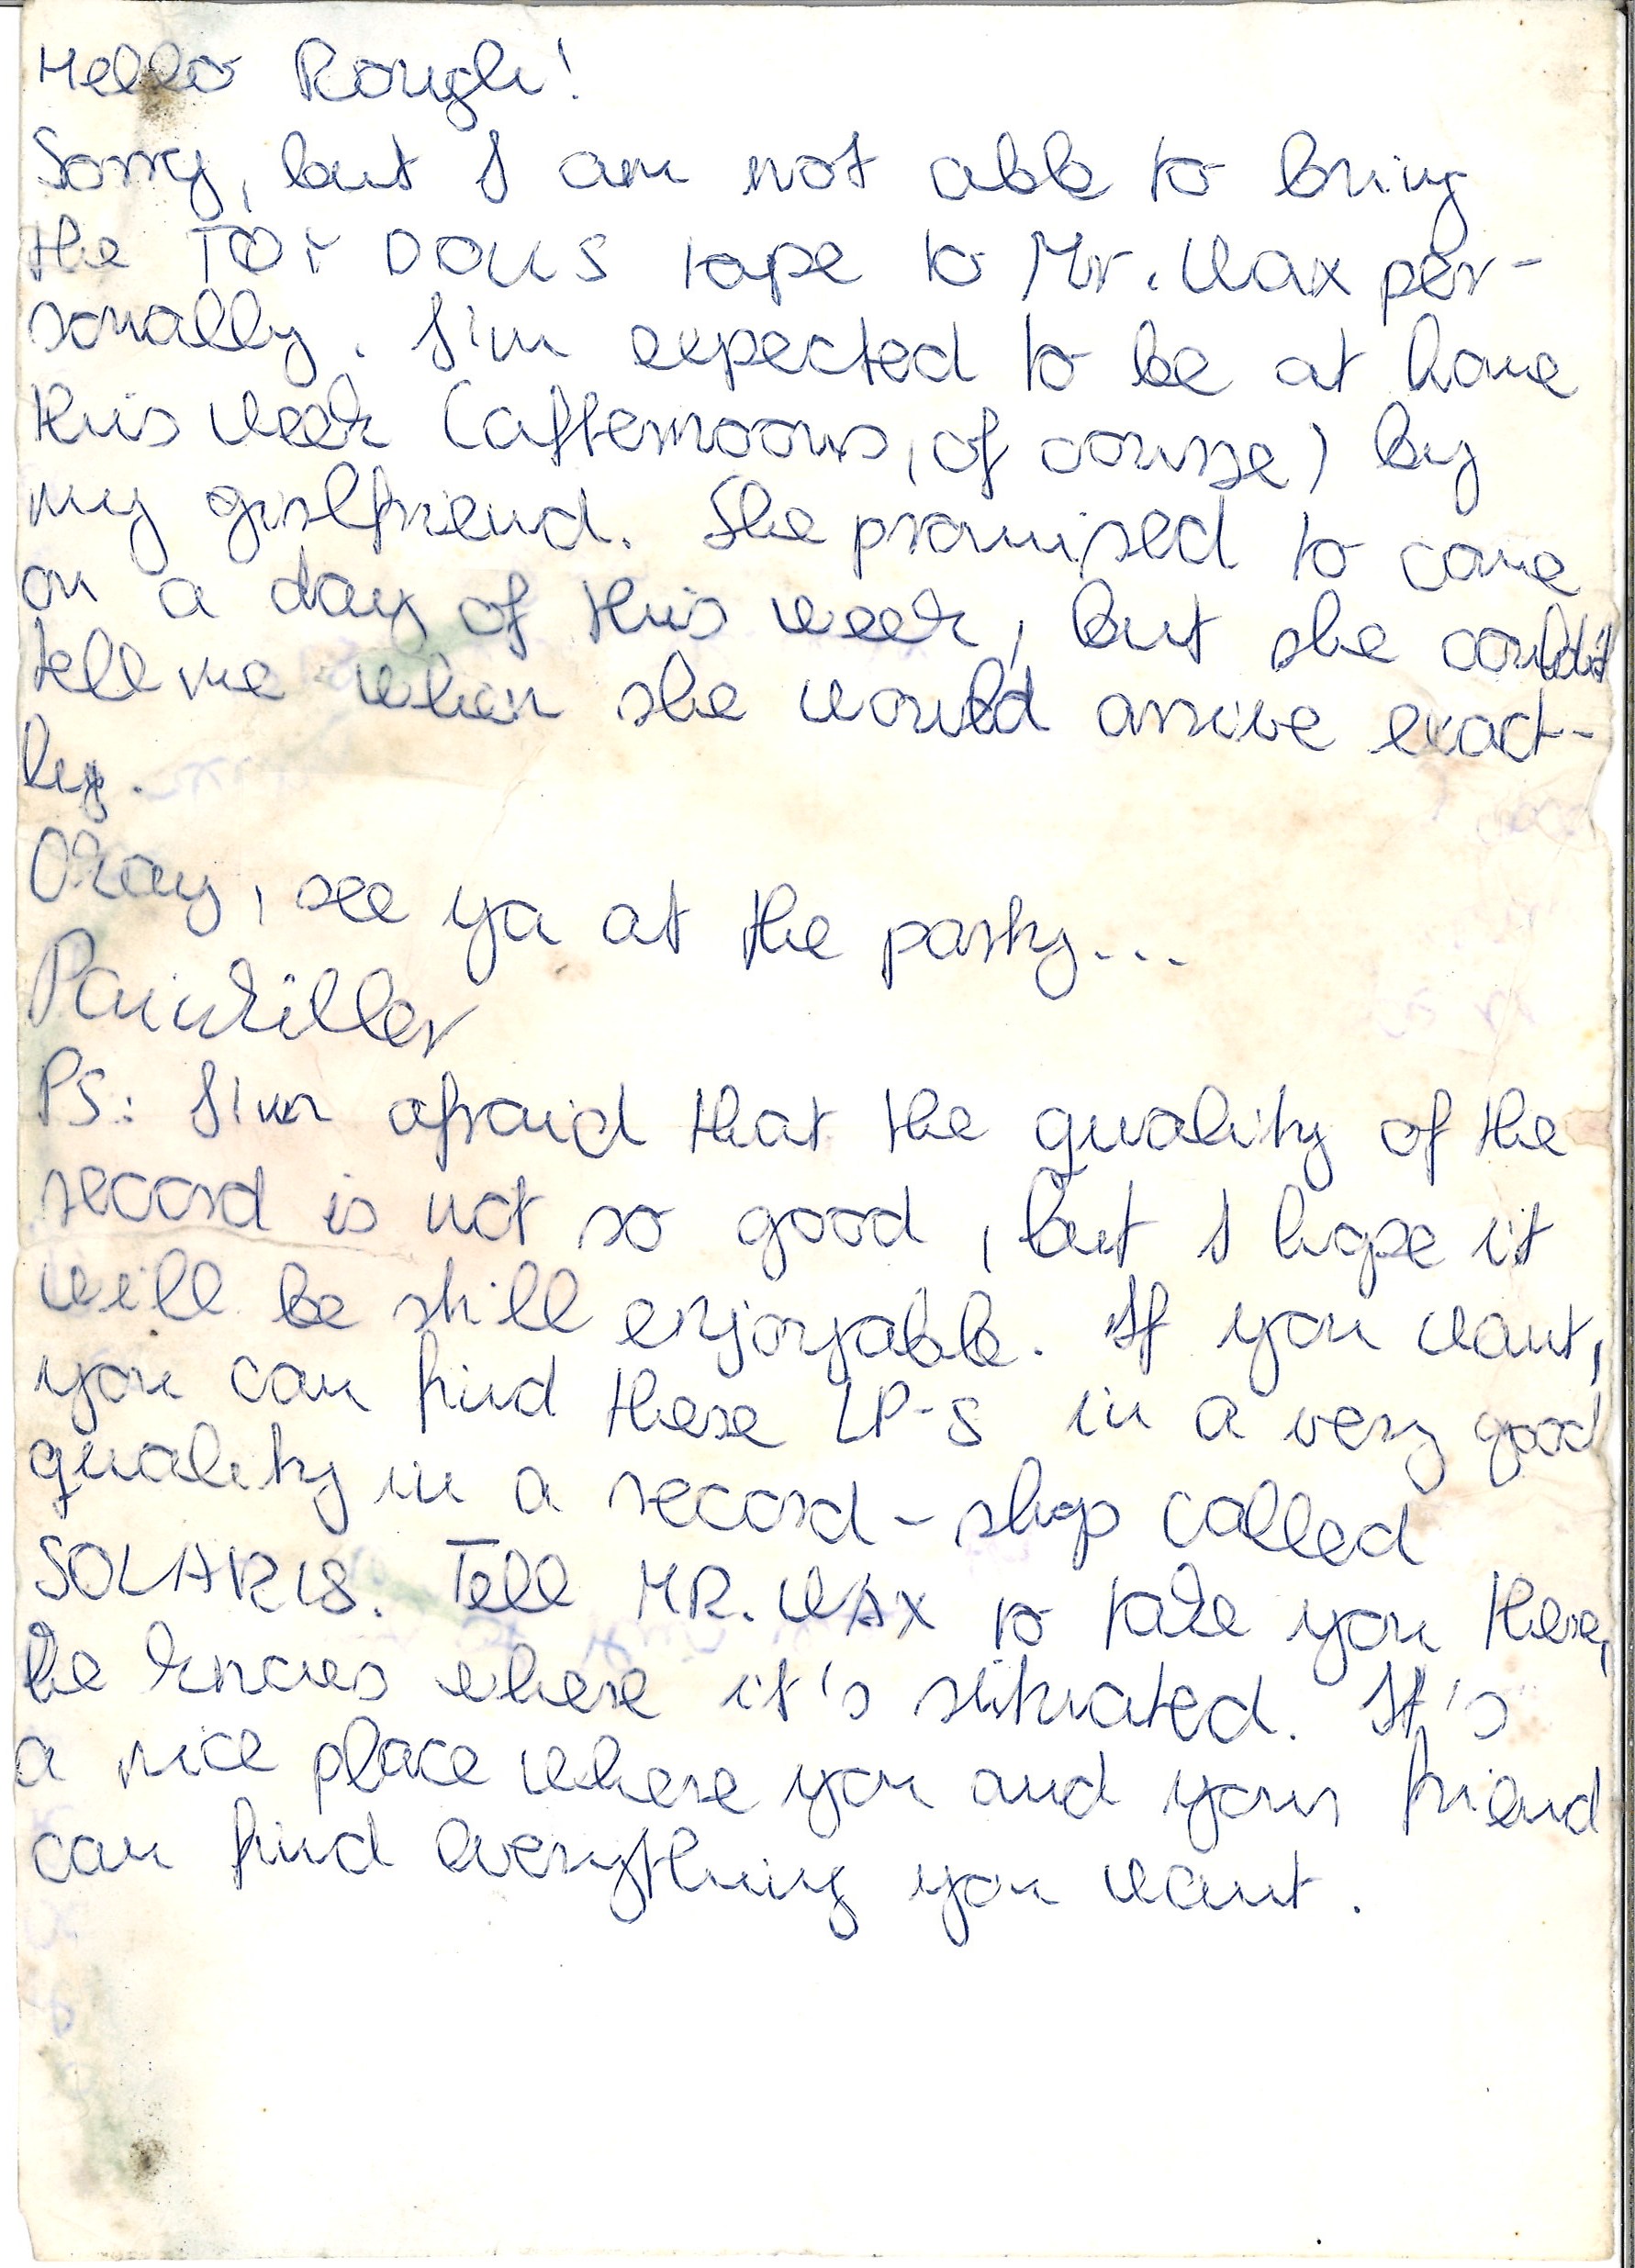 Hello Rough!
Sorry, but I am not able to bring
the TOY DOLLS tape to Mr. Wax per-
sonally. I'm expected to be at home
this week (afternoons, of course) by
my girlfriend. She promised to come
on a day of this week, but she couldn't
tell me when she would arrive exact-
ly.
Okay, see ya at the party...
Painkiller
PS: I'm afraid that the quality of the
record is not so good, but I hope it
will be still enjoyable. If you want,
you can find these LP-s in a very good
quality in a record-shop called
SOLARIS. Tell MR. WAX to take you there,
he knows where it's situated. It's
a nice place where you and your friend
can find everything you want.